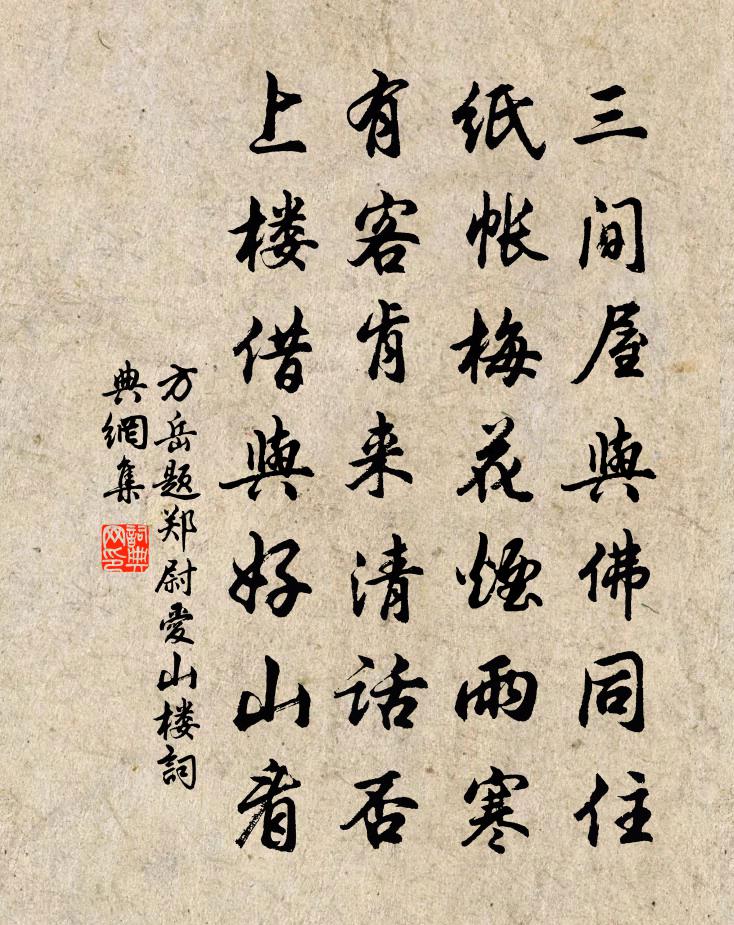 三间屋與佛同住
纸帐梅花烟雨寒
有客肯来清话否
上楼借與好山看
方岳题郑尉爱山楼詞
典網集
詞典網印